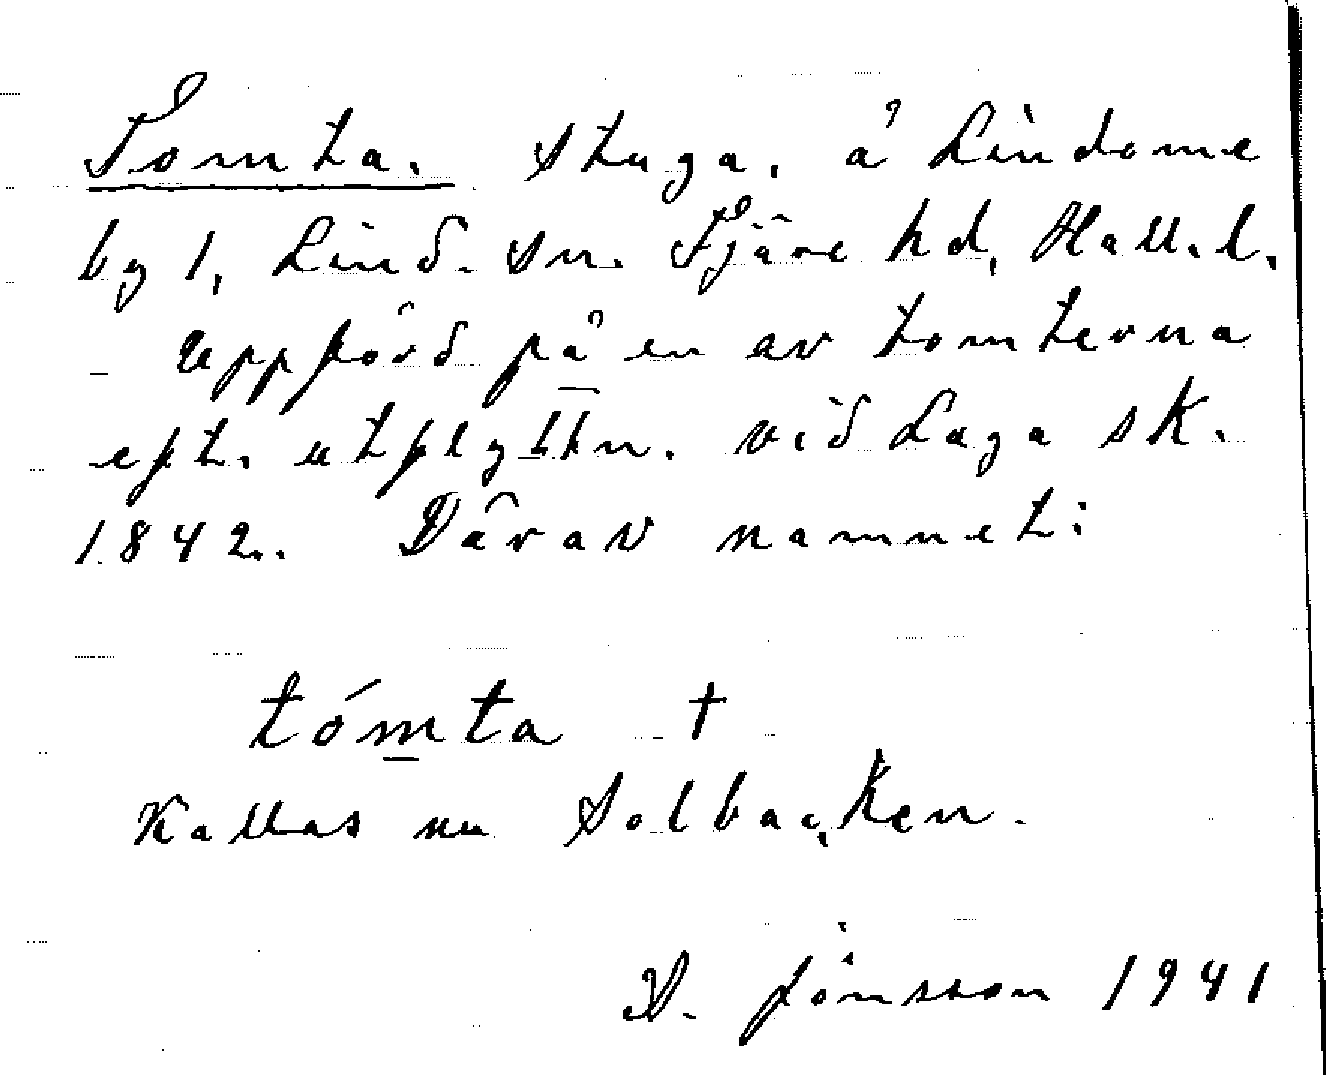 Tomta. Stuga. å Lindome
by 1, Lind. sn. Fjäre hd, Hall. l.
Uppförd på en av tomterna
eft. utflyttn. vid Laga sk.
1842. Därav namnet:
tómta †
Kallas nu Solbacken.
D. Jönsson 1941